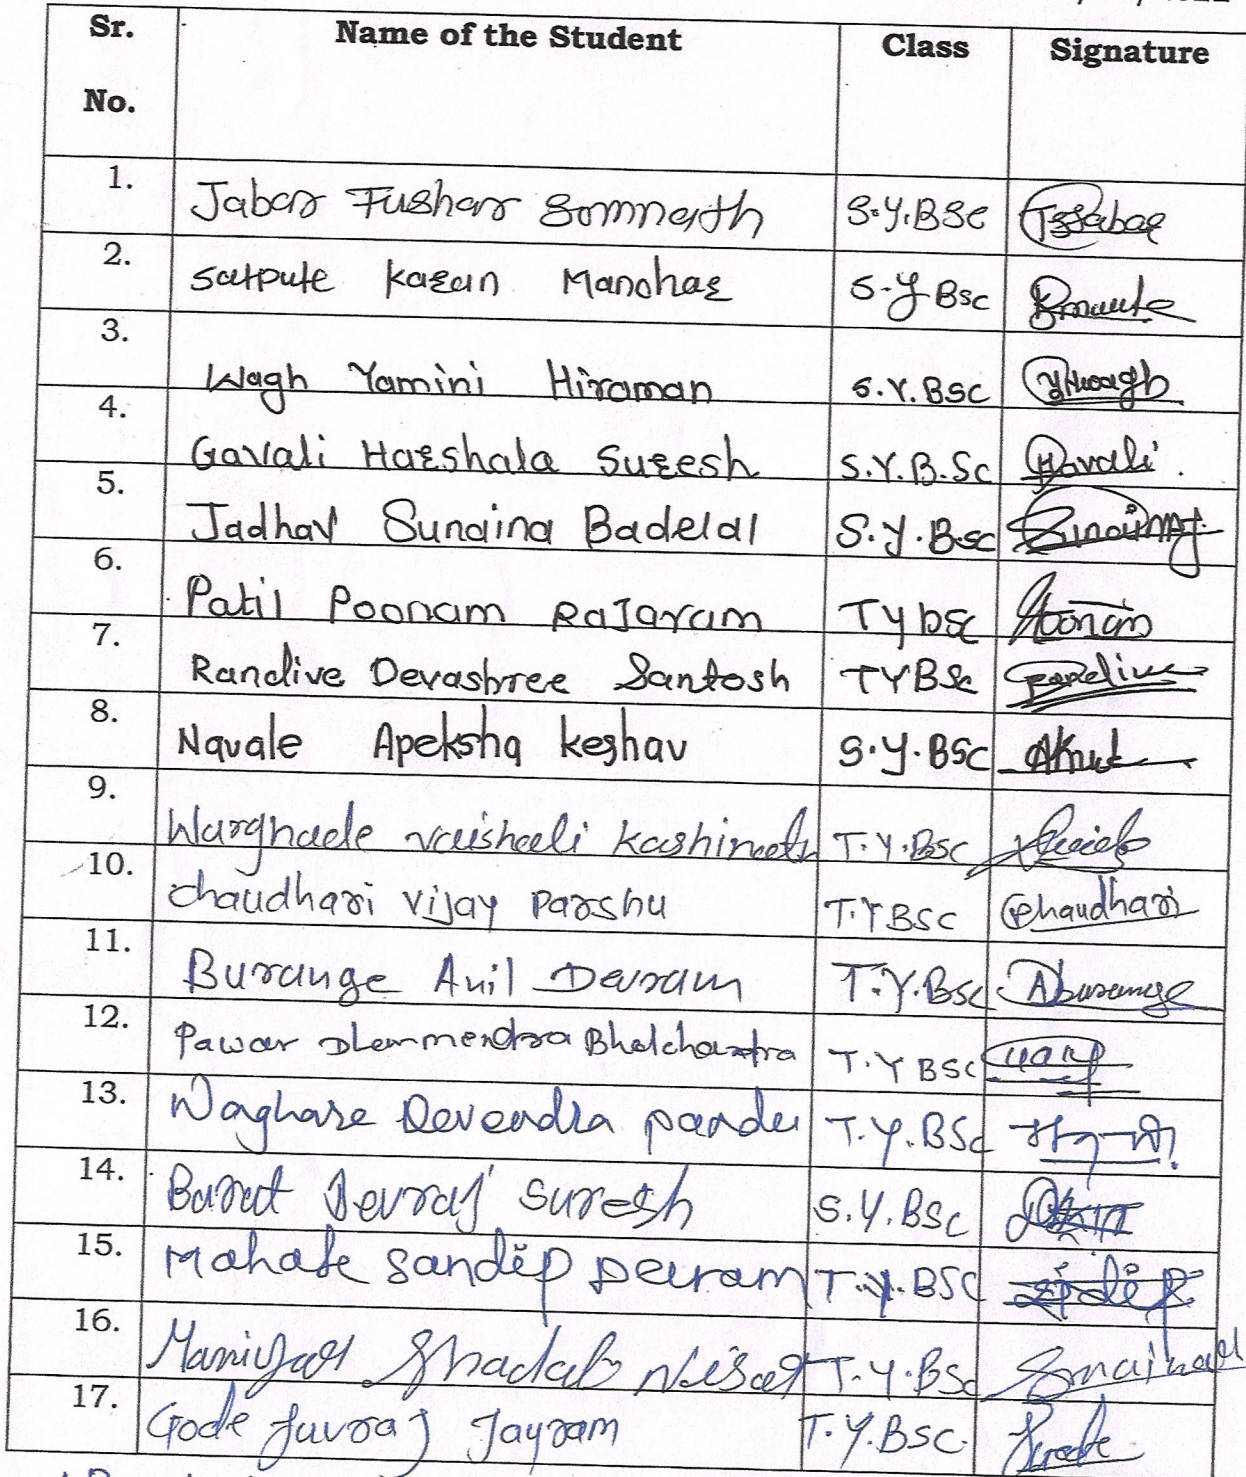 Sr. No. Name of the Student Class Signature
1. Jabar Tushar Somnath S.Y.BSc
2. Satpute Karan Manohar S.Y BSc
3. Wagh Yamini Hiraman S.Y.BSC
4. Gavali Harshala Suresh S.Y.B.Sc
5. Jadhav Sunaina Badelal S.Y.B.sc
6. Patil Poonam RaJaram TY bsc
7. Randive Devashree Santosh TYBSc
8. Navale Apeksha Keshav S.Y.BSC
9. Warghade Vaishali Kashinath T.Y.BSC
10. chaudhari vijay Parshu T.Y BSC Chaudhari
11. Burange Anil Devram T.Y.BSC ABurange
12. Pawar Dhammendra Bhalchandra T.Y BSC
13. Waghare Devendra pandu T.Y.BSc
14. Barat Devraj Suresh S.Y.BSc
15. Mahale Sandip Devram T.Y.BSC
16. Maniyar Shadab Nisar T.Y.BSc
17. Gode Juvraj Jayram T.Y.BSC.